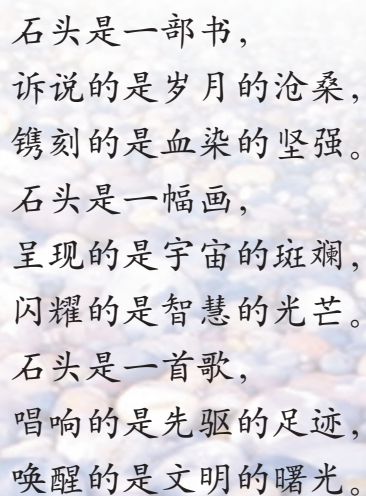 石头是一部书，
诉说的是岁月的沧桑，
镌刻的是血染的坚强。
石头是一幅画，
呈现的是宇宙的斑斓，
闪耀的是智慧的光芒。
石头是一首歌，
唱响的是先驱的足迹，
唤醒的是文明的曙光。